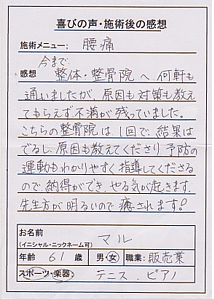 喜びの声・施術後の感想
施術メニュー: 腰痛
今まで
感想 整体・整骨院へ何軒も
通いましたが、原因も対策も教え
てもらえず不満が残っていました。
こちらの整骨院は、1回で、結果は
でるし、原因も教えてくださり、予防の
運動もわかりやすく指導してくださる
ので納得ができ、やる気が起きます。
先生方が明るいので癒されます!
お名前
(イニシャル・ニックネーム可) マル
年齢 61歳 男・女 職業: 販売業
スポーツ・楽器 テニス、ピアノ